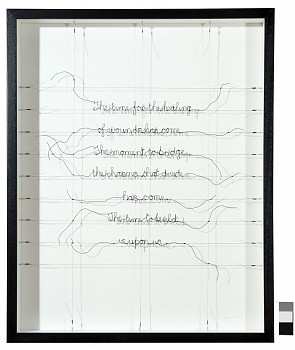 The time for the healing
of wounds has come
The moment to bridge
the chasms that divide
has come
The time to build
is upon us